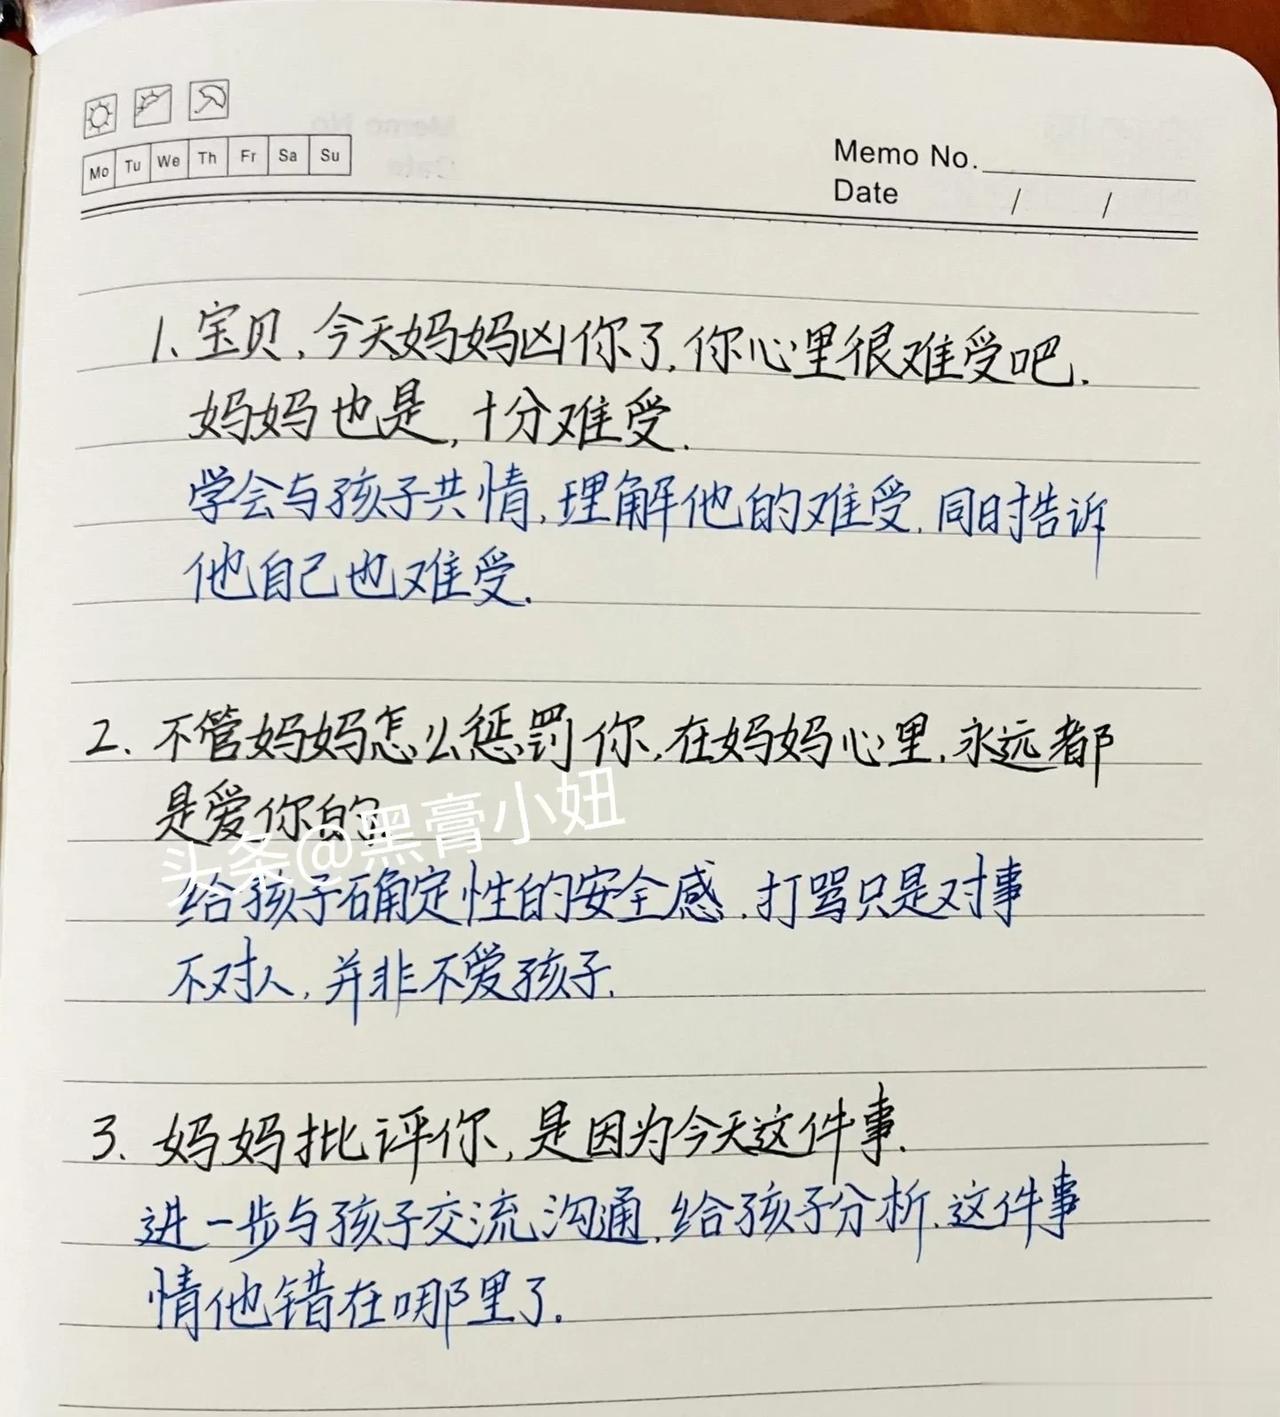 Mo Tu We Th Fr Sa Su
Memo No.
Date / /
1、宝贝,今天妈妈凶你了,你心里很难受吧.
妈妈也是,十分难受.
学会与孩子共情,理解他的难受,同时告诉
他自己也难受.
2、不管妈妈怎么惩罚你,在妈妈心里,永远都
是爱你的
头条@黑膏小妞
给孩子确定性的安全感.打骂只是对事
不对人,并非不爱孩子.
3、妈妈批评你,是因为今天这件事.
进一步与孩子交流沟通,给孩子分析、这件事
情他错在哪里了.